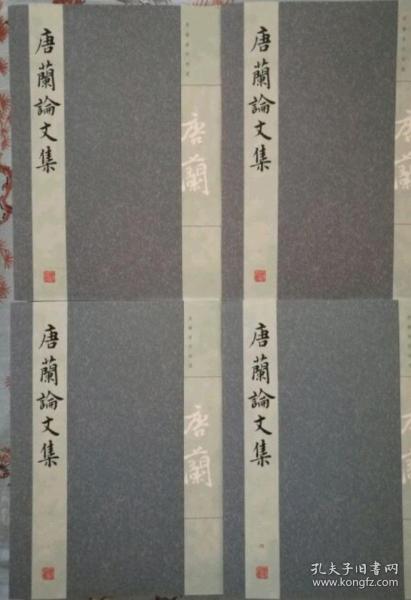 唐蘭論文集
唐蘭
唐蘭論文集
唐蘭論文集
唐蘭
唐蘭論文集
孔夫子旧书网
www.kongfz.com